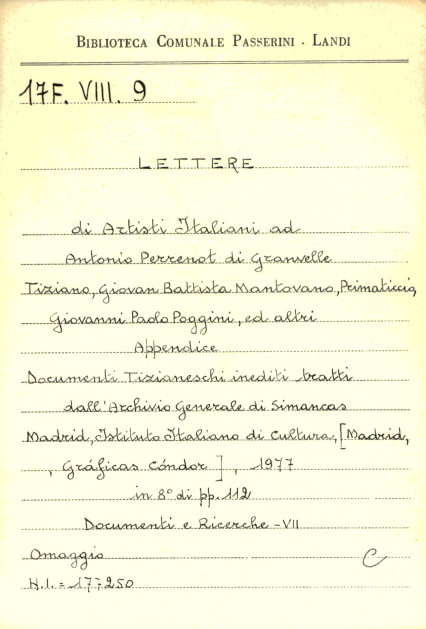 BIBLIOTECA COMUNALE PASSERINI - LANDI
17F. VIII. 9
LETTERE
di Artisti Italiani ad
Antonio Perrenot di Granvelle
Tiziano, Giovan Battista Mantovano, Primaticcio,
Giovanni Paolo Poggini, ed altri
Appendice
Documenti Tizianeschi inediti tratti
dall'Archivio Generale di Simancas
Madrid, Istituto Italiano di Cultura, [Madrid,
, Gráficas Cóndor], 1977
in 8° di pp. 112
Documenti e Ricerche - VII
Omaggio C
H.I. = 177250